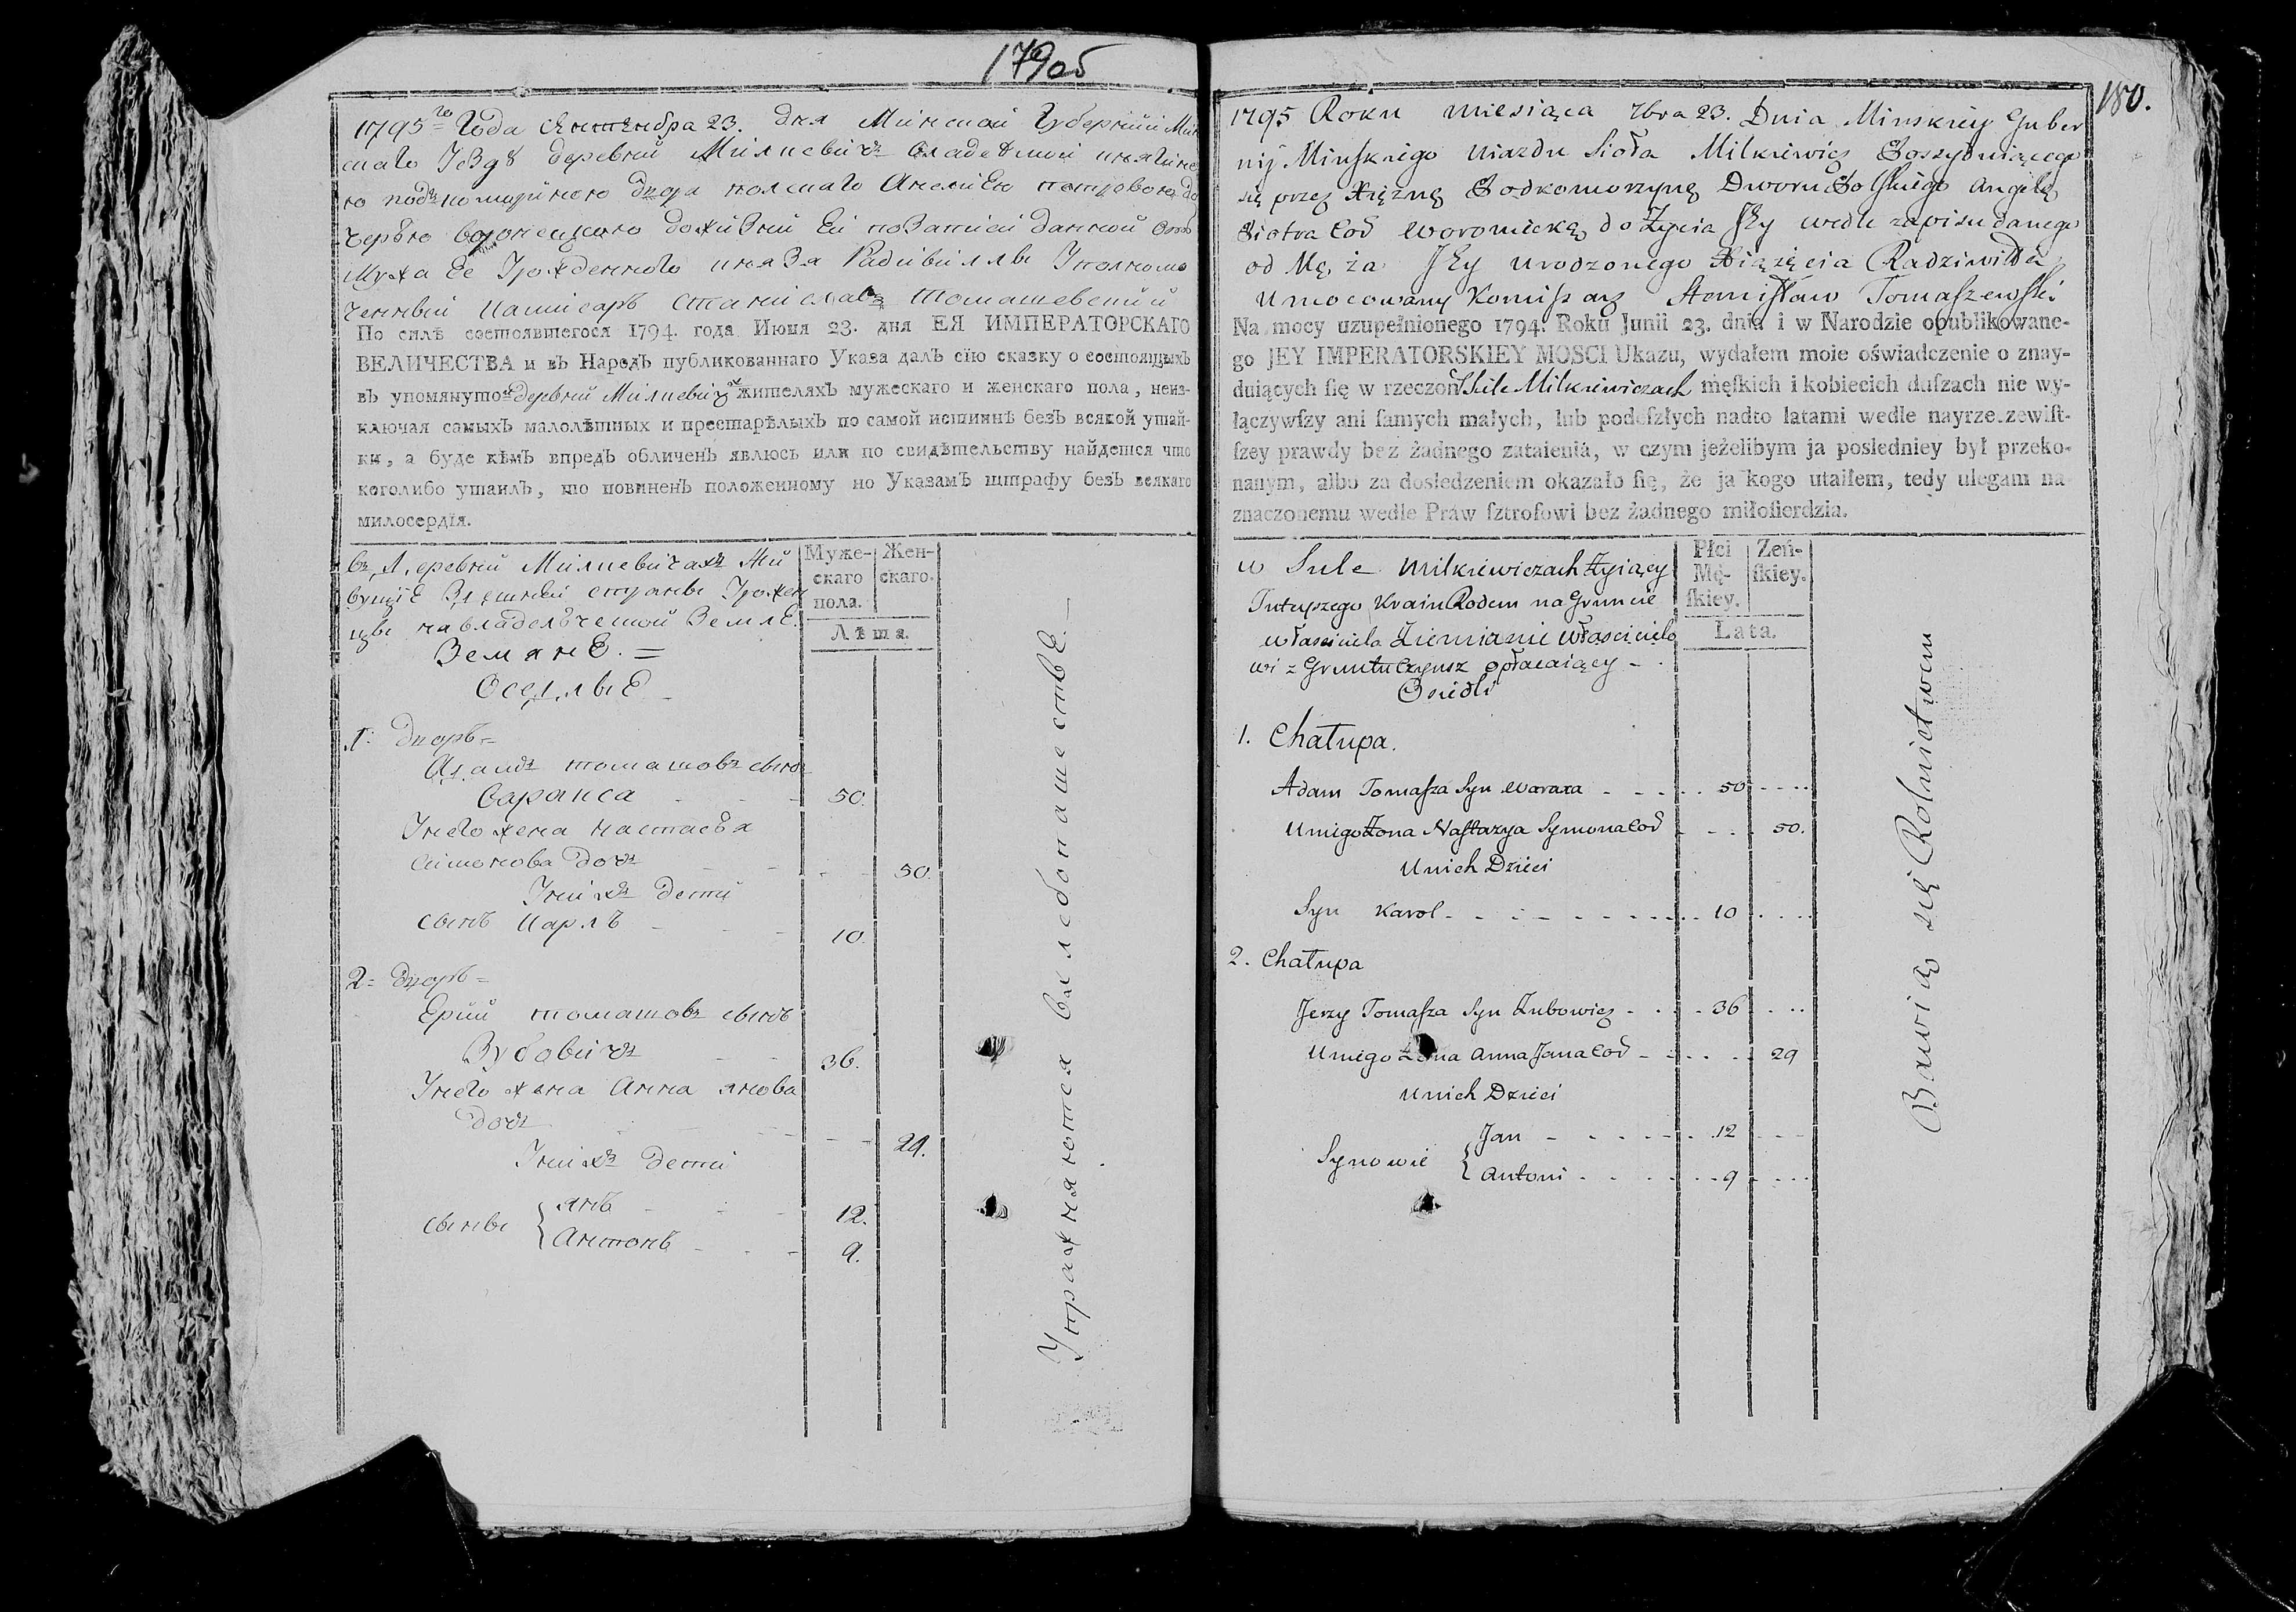 179об
1795го Года сентября 23. дня Минской Губернии Мин
скаго Уезда деревни Милкевичъ владеемой княгине
ю подкоморинею двора полскаго Анелиею петровою до
черью воронецкою до жизни Ей по записи данной отъ
мужа Ее Урожденного князя Радивиллы Уполномо
ченный Комисаръ Станиславъ Томашевский
По силѣ состоявшегося 1794. года Июня 23. дня ЕЯ ИМПЕРАТОРСКАГО
ВЕЛИЧЕСТВА и въ Народъ публикованнаго Указа далъ сїю сказку о состоящыхъ
въ упомянутой деревни Милкевичъ жителяхъ мужескаго и женскаго пола, неиз-
ключая самыхъ малолѣтныхъ и престарѣлыхъ по самой истиннѣ безъ всякой утай-
ки, а буде кѣмъ впредъ обличенъ явлюсь или по свидѣтельству найдется что
коголибо утаилъ, то повиненъ положенному по Указамъ штрафу безъ всякаго
милосердїя.
въ Деревни Милкевичахъ Жи
вущие Здешней страны Урожен
цы на владелческой Земле.
Земяне. =
Оседлые
Муже-
скаго
пола.
Жен-
скаго.
Лѣта.
1. Дворъ =
Адамъ томашовъ сынъ
Варакса - - - 50.
У него жена настасья
симонова дочь - - - - 50.
У нихъ дети
сынъ Карлъ - - 10.
2 = Дворъ =
Ерий томашовъ сынъ
Зубовичъ - - 36.
У него жена Анна янова
дочь - - - - 29.
У нихъ дети
сыны { янъ - - - 12.
Антонъ - - - 9.
Упражняются въ хлебопашестве
180.
1795 Roku miesiąca 7bra 23. Dnia Minskiey Guber
nij Minskiego Uiazdu Sioła Milkiewicz Posszyduiącego
się przez Xiężnę Podkomorzynę Dworu Polskiego Angelę
Piotra Cod Woroniecką do Życia Jey wedle zapisu danego
od Męża Jey Urodzonego Xiążęcia Radziwiłła
Umocowany Komisarz Stanisław Tomaszewski
Na mocy uzupełnionego 1794. Roku Junii 23. dnia i w Narodzie opublikowane-
go JEY IMPERATORSKIEY MOSCI Ukazu, wydałem moie oświadczenie o znay-
duiących się w rzeczon Siele Milkiewiczach męſkich i kobiecich duſzach nie wy-
łączywſzy ani ſamych małych, lub podeſzłych nadto latami wedle nayrzezewiſt-
ſzey prawdy bez żadnego zataienia, w czym jeżelibym ja posledniey był przeko-
nanym, albo za dosledzeniem okazało ſię, że ja kogo utaiłem, tedy ulegam na-
znaczonemu wedle Praw ſztrofowi bez żadnego miłoſierdzia.
w Siele Milkiewiczach Żyiący
Tutyszego Krain Rodem na Gruncie
właściciela Ziemianie właścicielo
wi z Gruntu Czynsz opłacaiący -
Osiedli
Płci
Mę-
ſkiey.
Żeń-
ſkiey.
Lata.
1. Chałupa.
Adam Tomasza Syn Waraxa - - - 50 ....
U niego Żona Nastazya Symona Cod - - - 50.
U nich Dzieci
Syn Karol - - - - - - - 10 ....
2. Chałupa
Jerzy Tomasza Syn Zubowicz - - - 36 ...
U niego Żona Anna Jana Cod - - - - 29
U nich Dzieci
Synowie { Jan - - - - - 12 ---
Antoni - - - - 9 ....
Bawią się Rolnictwem